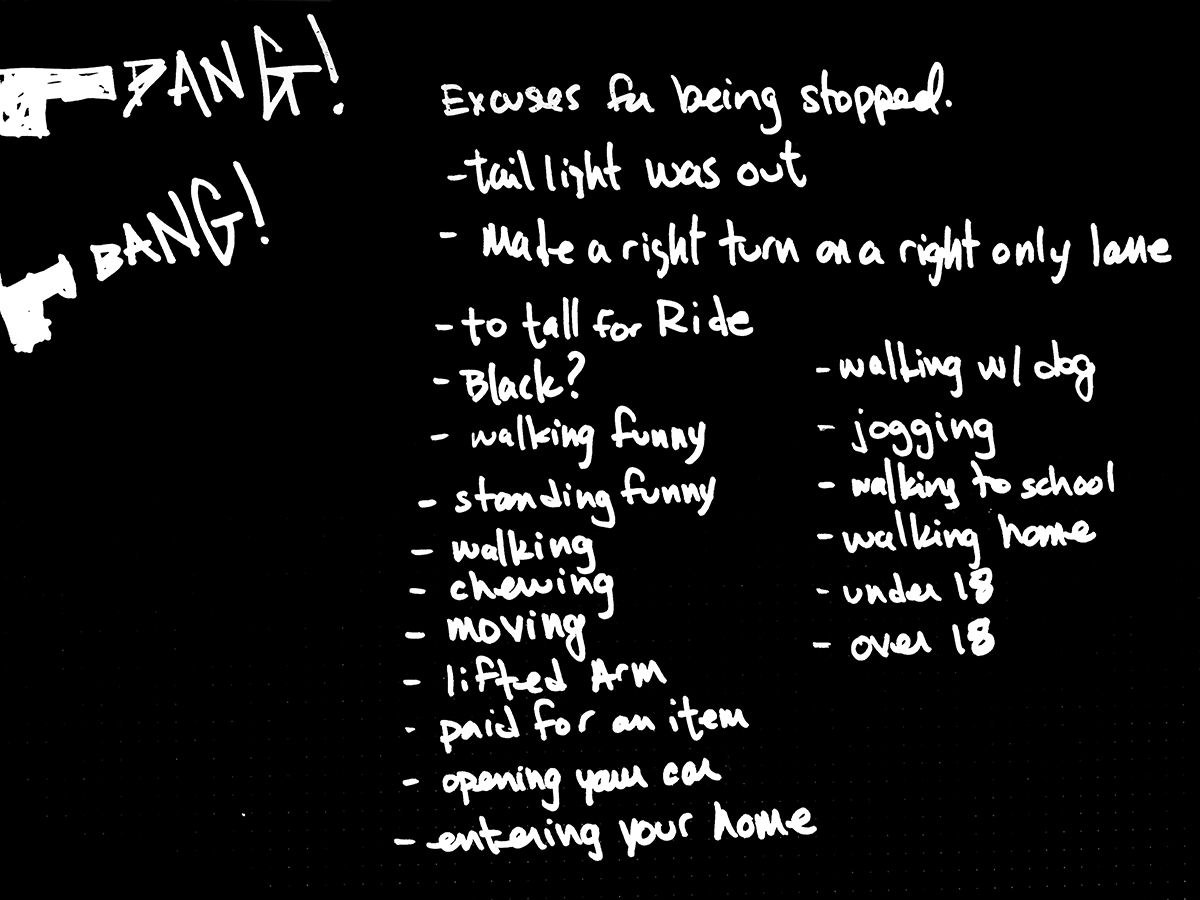 BANG!
BANG!
Excuses for being stopped.
- tail light was out
- Made a right turn on a right only lane
- to tall for Ride
- Black?
- walking funny
- standing funny
- walking
- chewing
- moving
- lifted Arm
- paid for an item
- opening your car
- entering your home
- walking w/ dog
- jogging
- walking to school
- walking home
- under 18
- over 18